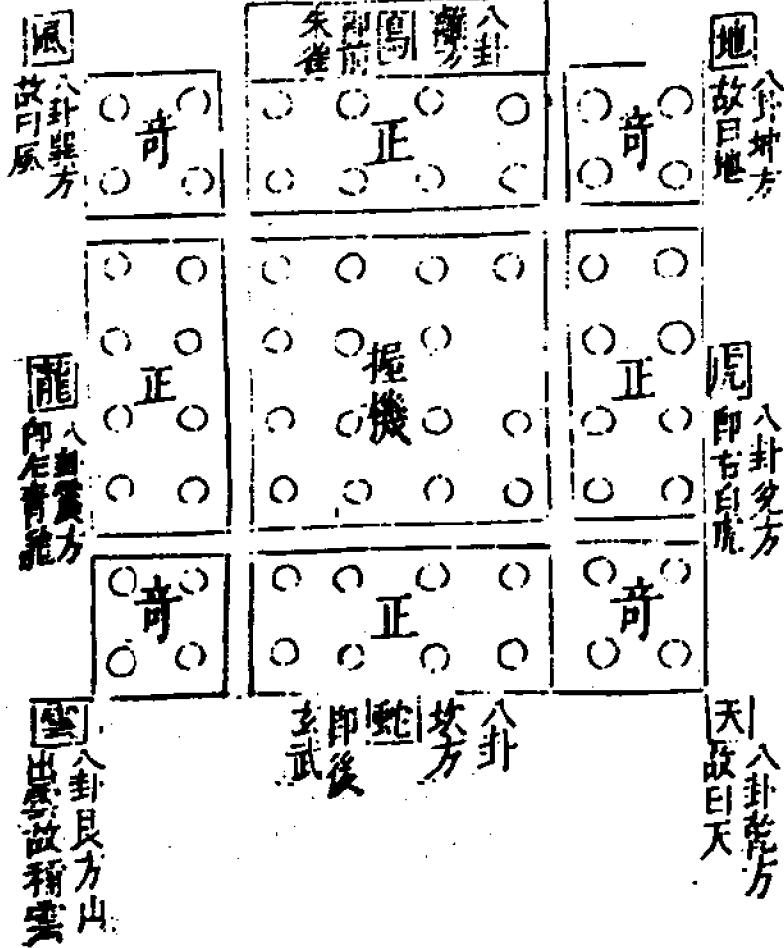 八卦
離方
鳥
即前
朱雀
地
八卦坤方
故曰地
風
八卦巽方
故曰風
奇
正
奇
虎
八卦兌方
即右白虎
正
握機
正
龍
八卦震方
即左青龍
奇
正
奇
天
八卦乾方
故曰天
八卦
坎方
蛇
即後
玄武
雲
八卦艮方山
出雲故稱雲